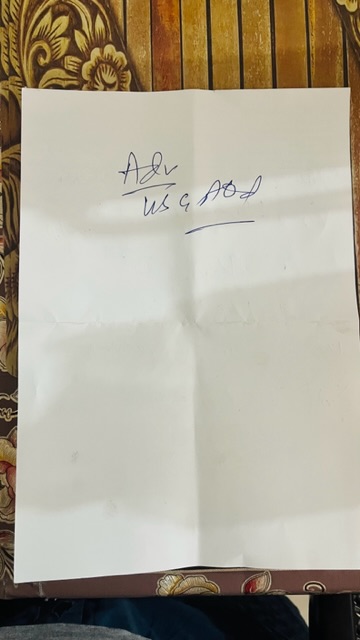 Adv
USG Abd